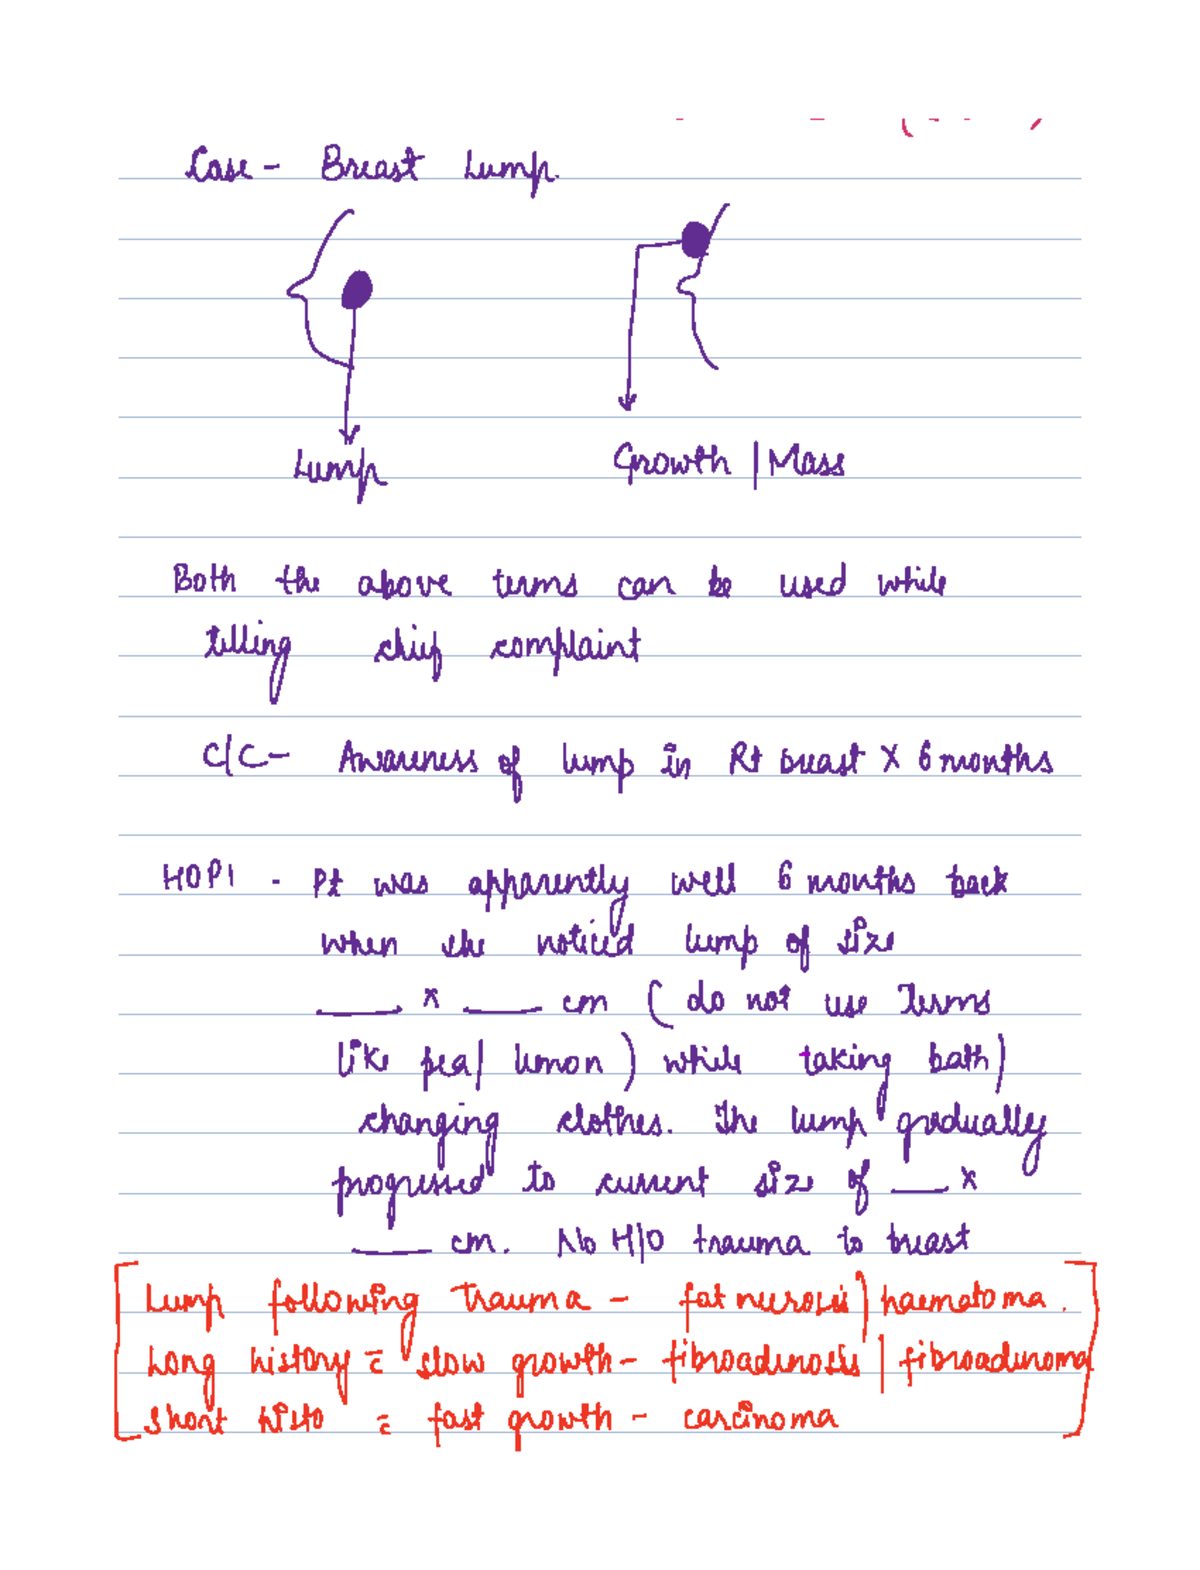 Case - Breast Lump.
Lump
Growth | Mass
Both the above terms can be used while
telling chief complaint
C/C - Awareness of lump in Rt breast X 6 months
HOPI - Pt was apparently well 6 months back
when she noticed lump of size
____ x ____ cm ( do not use terms
like pea/ lemon ) while taking bath)
changing clothes. The lump gradually
progressed to current size of ___ x
____ cm. No H/O trauma to breast
Lump following Trauma - fat necrosis) haematoma.
Long history c̄ slow growth - fibroadenosis | fibroadenoma
Short histo c̄ fast growth - carcinoma